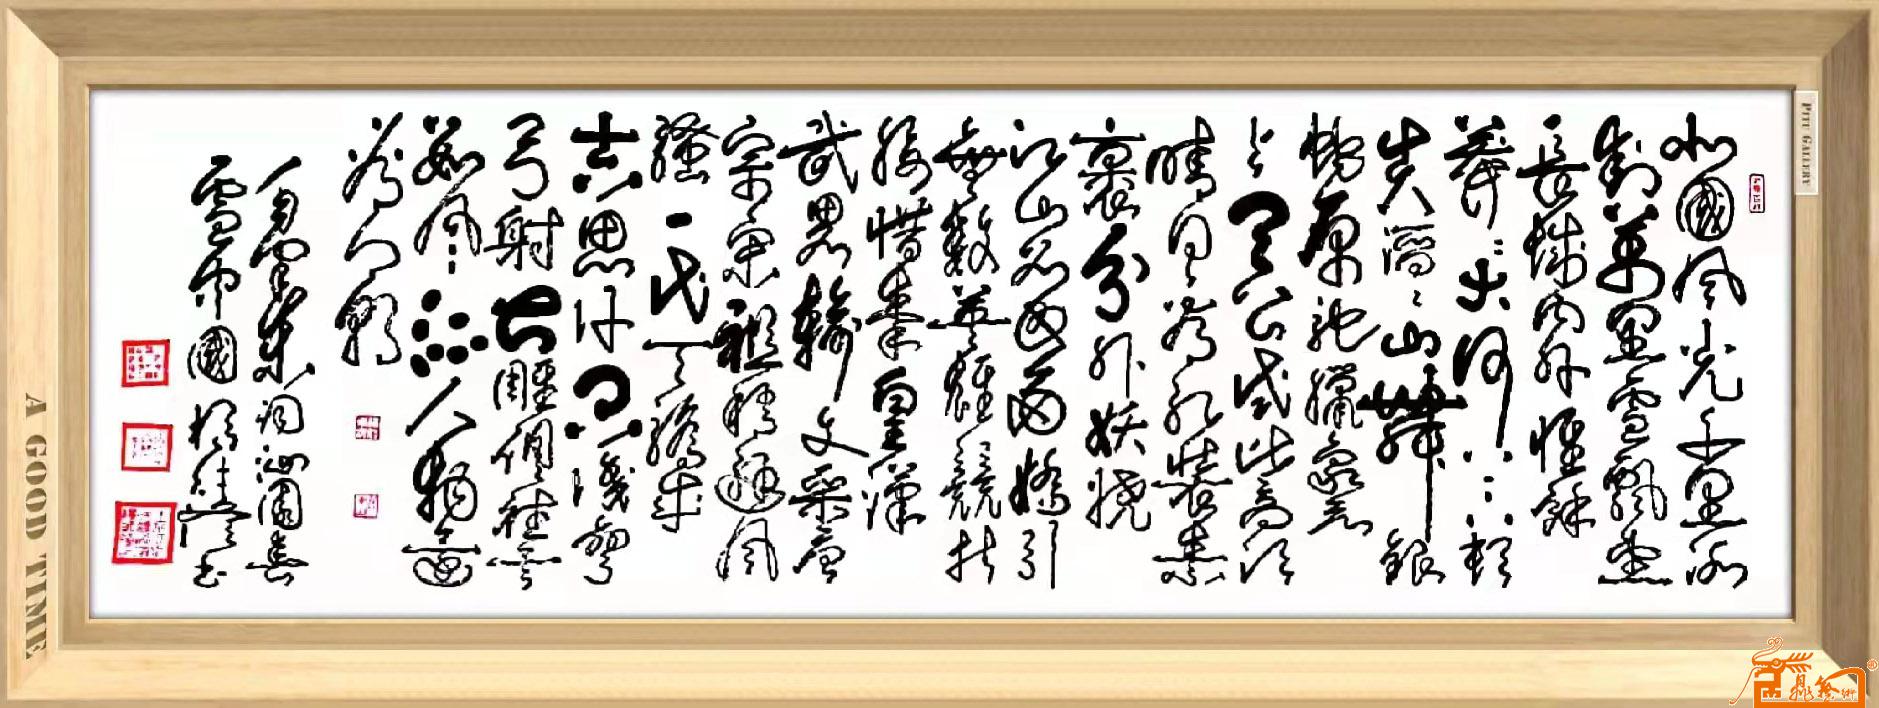 北國風光千里冰
封萬里雪飄望
長城內外惟餘
莽莽大河上下頓
失滔滔山舞銀
蛇原馳蠟象欲
与天公試比高須
晴日看紅裝素
裹分外妖嬈
江山如此多嬌引
無數英雄競折
腰惜秦皇漢
武略輸文采唐
宗宋祖稍遜風
騷一代天驕成
吉思汗只識彎
弓射大雕俱往矣
數風流人物還
看今朝
毛澤東詞沁園春
雪中國書
PITU GALLERY
A GOOD TIME